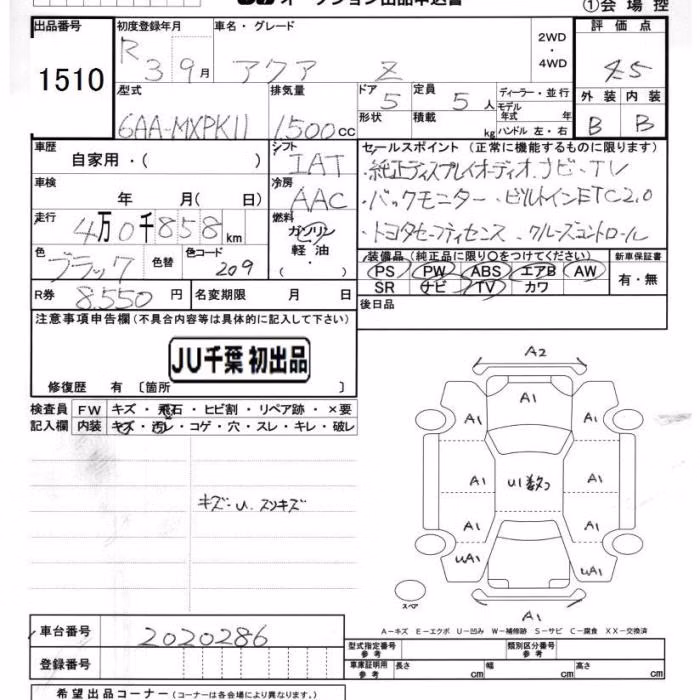 オークション出品申込書
①会場控
出品番号 初度登録年月 車名・グレード 評価点
1510 R 3 9月 アクア Z 2WD・4WD 4.5
型式 排気量 ドア 定員 ディーラー・並行 外装 内装
6AA-MXPK11 1500cc 5 5人 モデル年式 年 B B
形状 積載 kg ハンドル 左・右
車歴 シフト セールスポイント (正常に機能するものに限ります)
自家用・( ) IAT ・純正ディスプレイオーディオ ナビ・TV
車検 冷房 ・バックモニター・ビルトインETC2.0
年 月( 日) AAC ・トヨタセーフティセンス・クルーズコントロール
走行 燃料
4万0千858km ガソリン
軽油
・( )
色 色替 色コード 装備品 (純正品に限り○をつけてください) 新車保証書
ブラック 209 PS PW ABS エアB AW 有・無
SR ナビ TV カワ
R券 8.550円 名変期限 月 日 後日品
注意事項申告欄 (不具合内容等は具体的に記入して下さい)
JU千葉 初出品
修復歴 有 〔箇所 〕
検査員 FW キズ・飛石・ヒビ割・リペア跡・×要
記入欄 内装 キズ・汚レ・コゲ・穴・スレ・キレ・破レ
キズ・U. スリキズ
A2
A1
A1 A1
A1 U1数つ A1
A1 A1
uA1 uA1
スペア
A1
A-キズ E-エクボ U-凹み W-補修跡 S-サビ C-腐食 XX-交換済
車台番号 2020286
型式指定番号 参考 類別区分番号 参考
登録番号 車庫証明用 参考 長さ cm 幅 cm 高さ cm
希望出品コーナー (コーナーは各会場により異なります。)